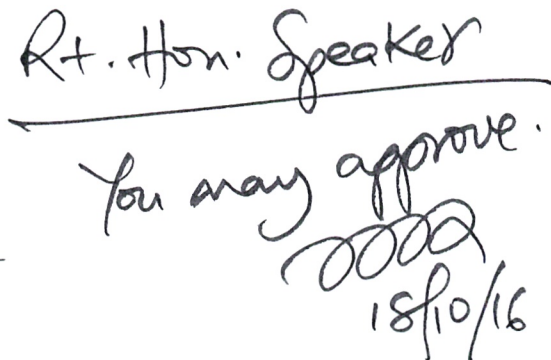 Rt. Hon. Speaker
You may approve.
18/10/16